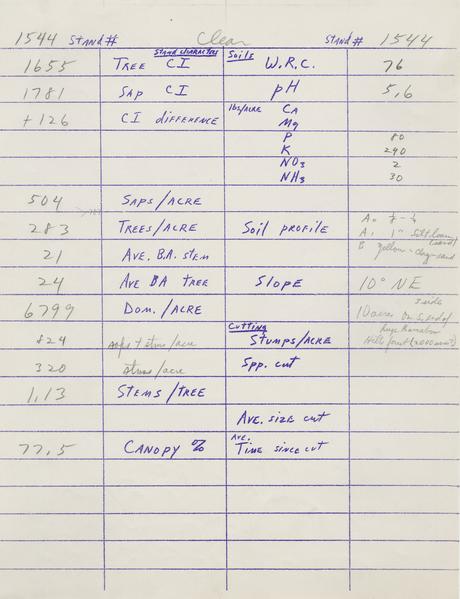 1544 STAND # Clear STAND # 1544
STAND CHARACTERS Soils
1655 TREE CI W.R.C. 76
1781 SAP CI pH 5,6
+126 CI DIFFERENCE lbs/ACRE CA
Mg
P 80
K 290
NO3 2
NH3 30
504 SAPS/ACRE
283 TREES/ACRE Soil PROFILE
A1 1" Silt loam
(sand)
21 AVE. B.A. STEM B yellow-clay-sand
24 AVE BA TREE SLOPE 10° NE
side
6799 DOM./ACRE 10 acres on S. side of
Cutting huge
824 saps + stems/acre STUMPS/ACRE
320 stems/acre Spp. cut
1,13 STEMS/TREE
AVE. SIZE CUT
77,5 CANOPY % AVE. TIME SINCE CUT